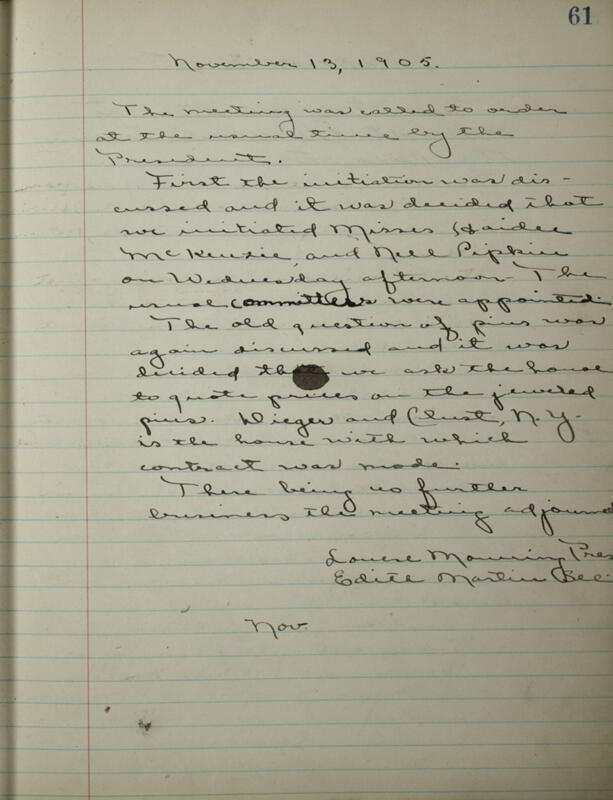 61
November 13, 1905.
The meeting was called to order
at the usual time by the
President.
First the initiation was dis-
cussed and it was decided that
we initiated Misses Haidee
McKenzie, and Nell Pipkin
on Wednesday afternoon. The
usual committees were appointed.
The old question of pins was
again discussed and it was
decided that we ask the house
to quote prices on the jeweled
pins. Dieges and Clust, N.Y.
is the house with which
contract was made.
There being no further
business the meeting adjourned
Louise Manning Pres
Edith Martin Sec.
Nov.